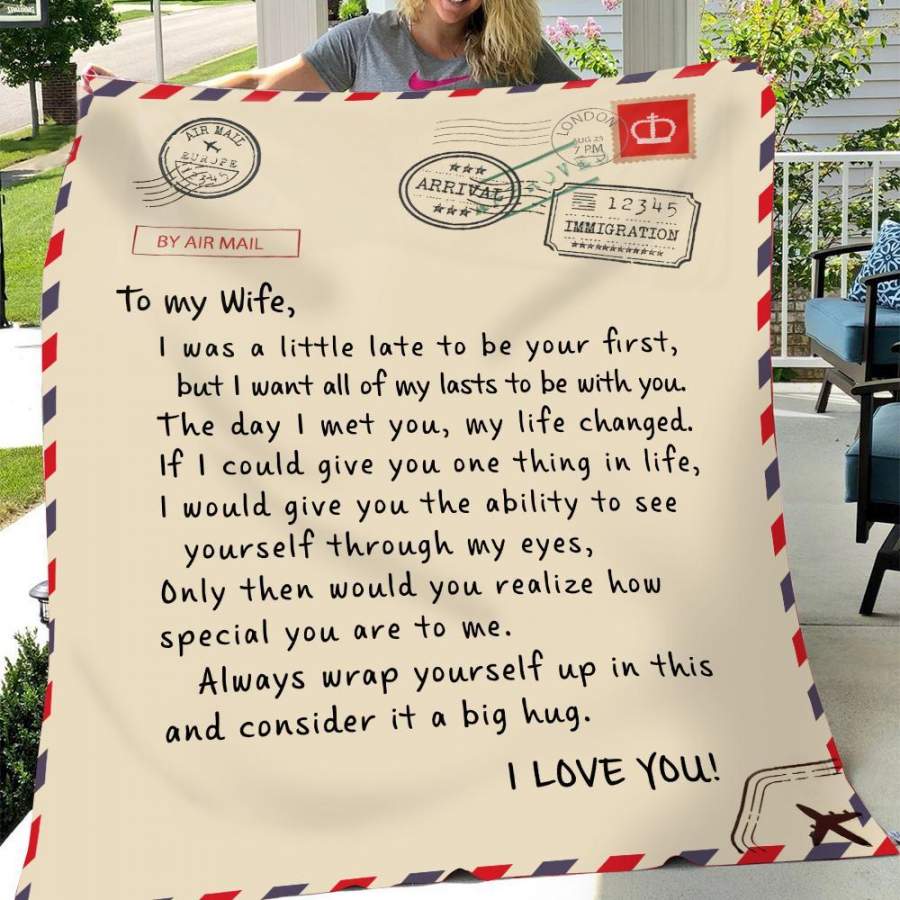 SPALDING
AIR MAIL
EUROPE
12345
LONDON
AUG 23
7 PM
ARRIVAL
12345
IMMIGRATION
BY AIR MAIL
To my Wife,
I was a little late to be your first,
but I want all of my lasts to be with you.
The day I met you, my life changed.
If I could give you one thing in life,
I would give you the ability to see
yourself through my eyes,
Only then would you realize how
special you are to me.
Always wrap yourself up in this
and consider it a big hug.
I LOVE YOU!